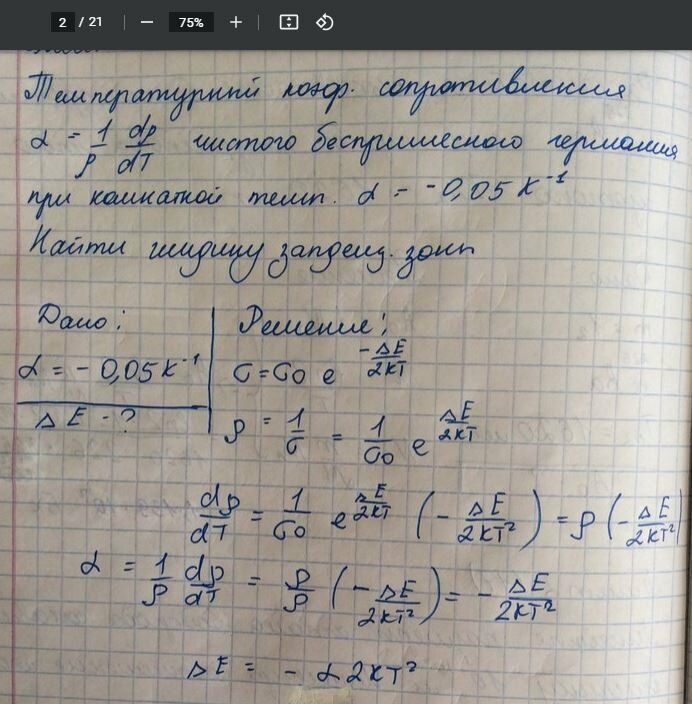 2 / 21 75%
Температурный коэф. сопротивления
α = 1/ρ dρ/dT чистого беспримесного германия
при комнатной темп. α = -0,05 К⁻¹
Найти ширину запрещ. зоны
Дано:
α = - 0,05 К⁻¹
ΔE - ?
Решение:
σ = σ₀ e^(-ΔE/2кТ)
ρ = 1/σ = 1/σ₀ e^(ΔE/2кТ)
dρ/dT = 1/σ₀ e^(ΔE/2кТ) (- ΔE/2кТ²) = ρ (- ΔE/2кТ²)
α = 1/ρ dρ/dT = ρ/ρ (- ΔE/2кТ²) = - ΔE/2кТ²
ΔE = - α 2кТ²